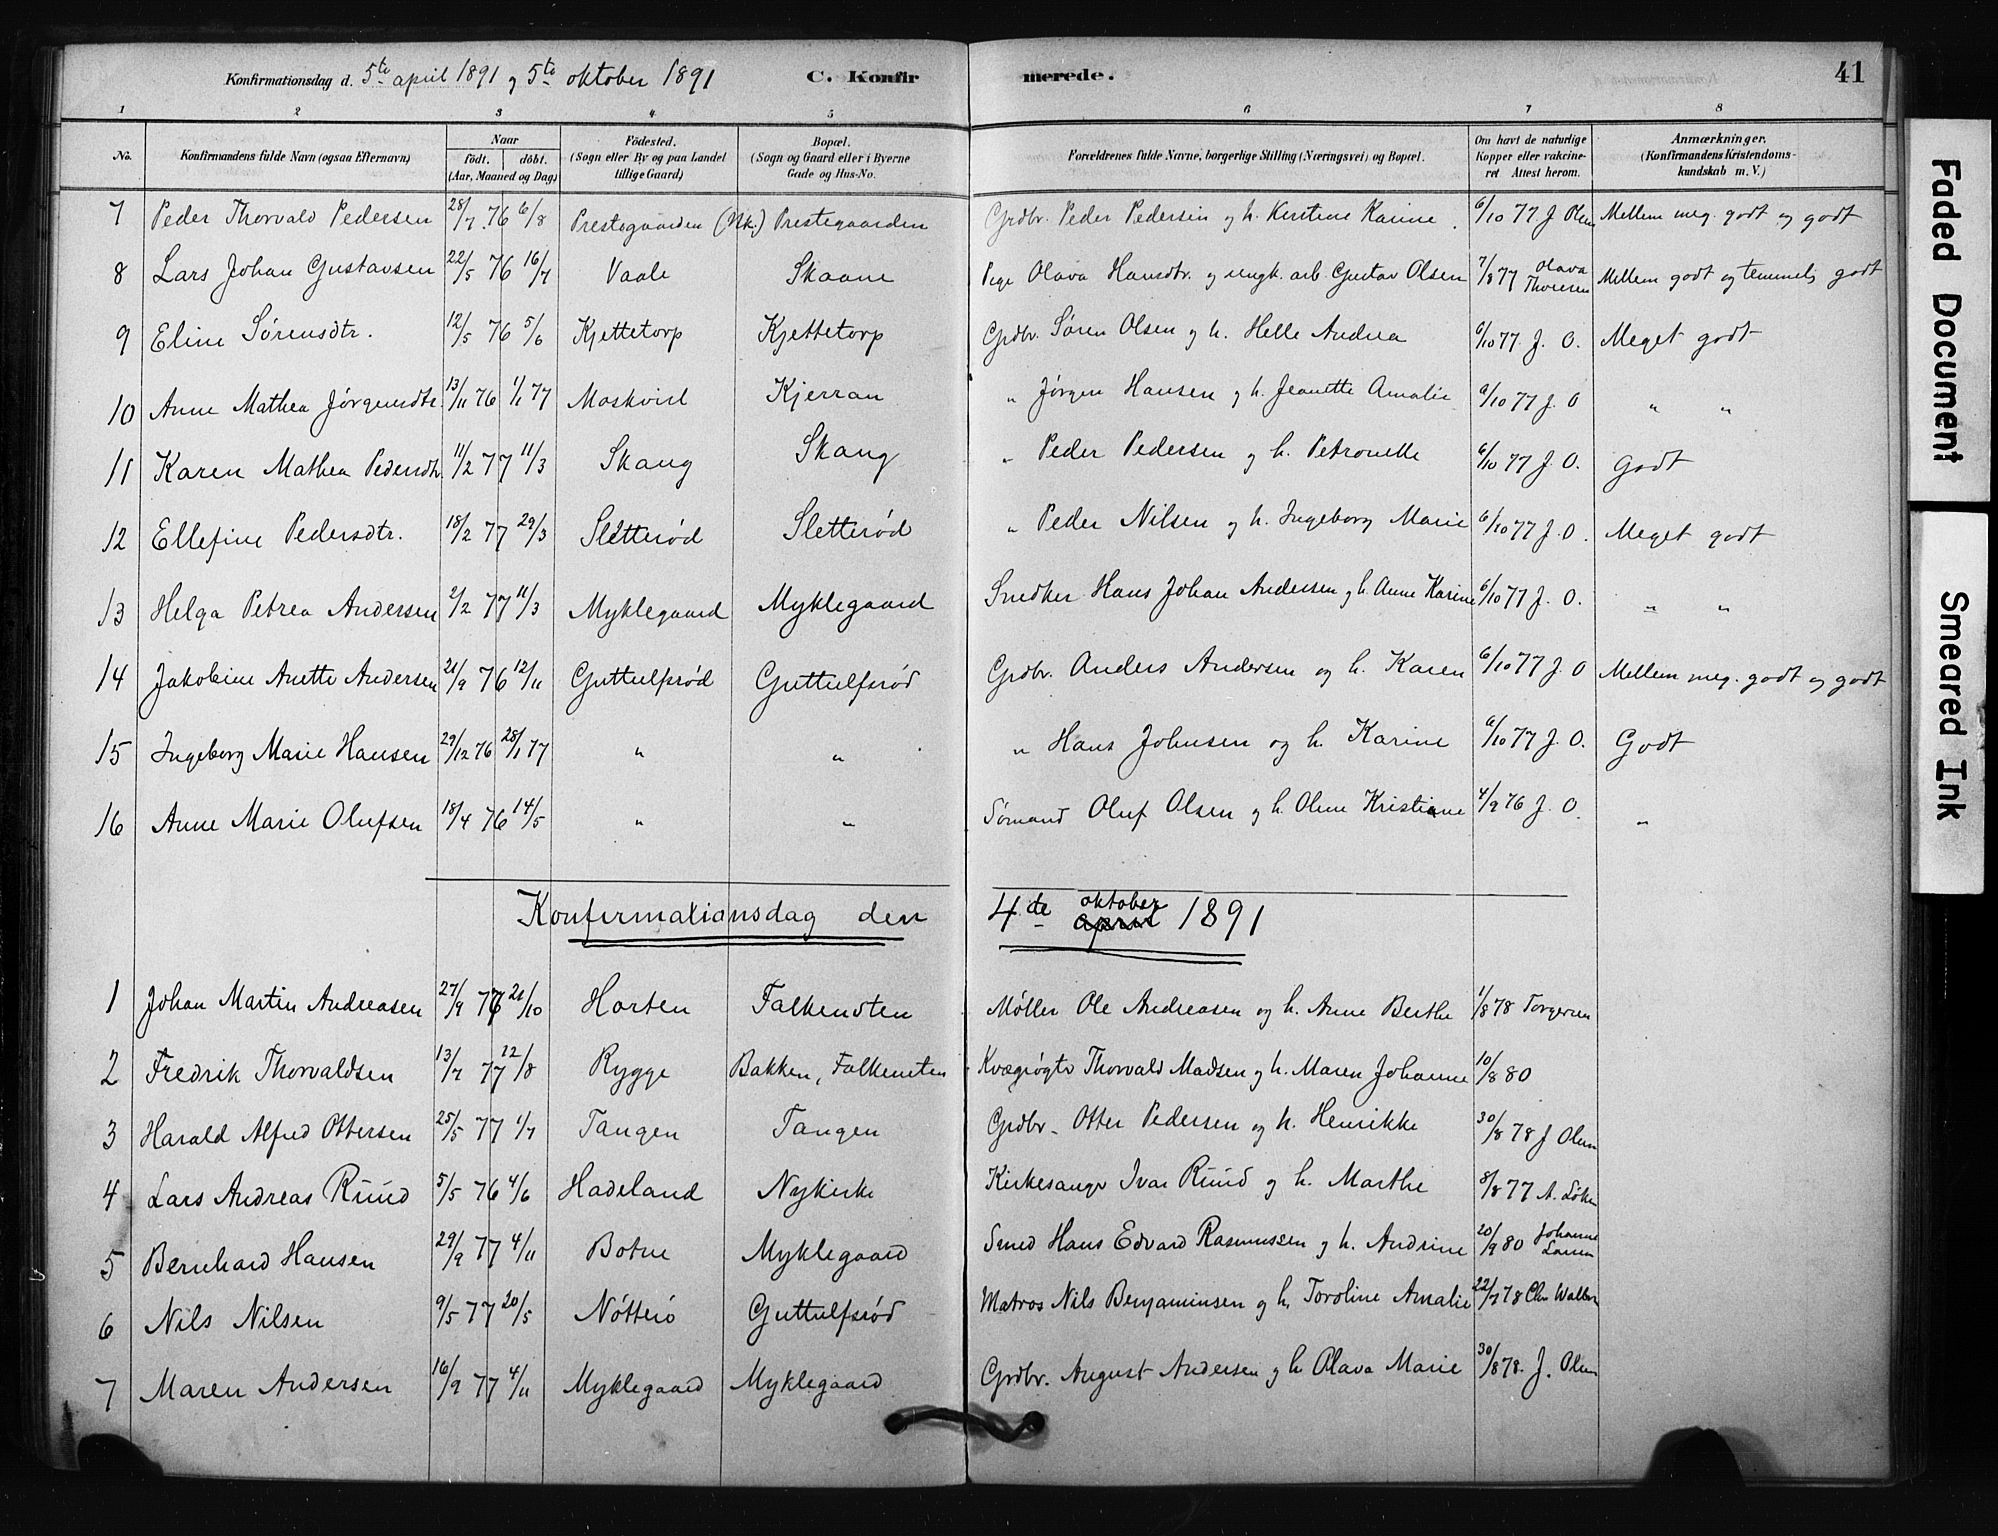 Konfirmationsdag d. 5te april 1891 og 5te oktober 1891 C. Konfirmerede. 41
1 2 3 4 5 6 7 8
No. Konfirmandens fulde Navn (ogsaa Efternavn) Naar födt. döbt. (Aar, Maaned og Dag) Födested. (Sogn eller By og paa Landet tillige Gaard) Bopæl. (Sogn og Gaard eller i Byerne Gade og Hus-No. Forældrenes fulde Navne, borgerlige Stilling (Næringsvei) og Bopæl. Om havt de naturlige Kopper eller vakcineret Attest herom. Anmærkninger. (Konfirmandens Kristendomskundskab m. V.)
7 Peder Thorvald Pedersen 28/7 76 6/8 Prestegaarden (Nk.) Prestegaarden Grdbr. Peder Pedersen og h. Kirstine Karine 6/10 77 J Olsen Mellem meg. godt og godt
8 Lars Johan Gustavsen 22/5 76 16/7 Vaale Skaane Pige Olava Hansdtr. og ungk. arb. Gustav Olsen 7/8 77 Olava Thoresen Mellem godt og temmelig godt
9 Eline Sørensdtr. 12/5 76 5/6 Kjettetorp Kjettetorp Grdbr. Søren Olsen og h. Helle Andrea 6/10 77 J. O. Meget godt
10 Anne Mathea Jørgensdtr. 13/11 76 1/1 77 Moskvil Kjerran " Jørgen Hansen og h. Jeanette Amalie 6/10 77 J. O " "
11 Karen Mathea Pedersdtr. 11/2 77 11/3 Skaug Skaug " Peder Pedersen og h. Petronelle 6/10 77 J. O. Godt
12 Ellefine Pedersdtr. 18/2 77 29/3 Sletterød Sletterød " Peder Nilsen og h. Ingeborg Marie 6/10 77 J. O. Meget godt
13 Helga Petrea Andersen 2/2 77 11/3 Myklegaard Myklegaard Snedker Hans Johan Andersen og h. Anne Karine 6/10 77 J. O. " "
14 Jakobine Anette Andersen 21/9 76 12/11 Guttulfsrød Guttulfsrød Grdbr. Anders Andersen og h. Karen 6/10 77 J. O Mellem meg. godt og godt
15 Ingeborg Marie Hansen 29/12 76 28/1 77 " " " Hans Johnsen og h. Karine 6/10 77 J. O. Godt
16 Anne Marie Olufsen 18/4 76 14/5 " " Sømand Oluf Olsen og h. Oline Kristiane 4/9 76 J. O. "
Konfirmationsdag den 4de april oktober 1891
1 Johan Martin Andreasen 27/9 76 21/10 Horten Falkensten Møller Ole Andreasen og h. Anne Berthe 1/8 78 Torgersen
2 Fredrik Thorvaldsen 13/7 77 12/8 Rygge Bakken, Falkensten Kvægrøgter Thorvald Madsen og h. Maren Johanne 10/8 80
3 Harald Alfred Ottersen 25/5 77 1/7 Tangen Tangen Grdbr. Otter Pedersen og h. Henrikke 30/8 78 J Olsen
4 Lars Andreas Ruud 5/5 76 4/6 Hadeland Nykirke Kirkesanger Ivar Ruud og h. Marthe 8/8 77 A. Løken
5 Bernhard Hansen 29/9 77 4/11 Botne Myklegaard Smed Hans Edvard Rasmussen og h. Andrine 20/9 80 Johanne Larsen
6 Nils Nilsen 9/5 77 20/5 Nøtterö Guttulfsrød Matros Nils Benjaminsen og h. Toroline Amalie 22/7 78
7 Maren Andersen 16/9 77 4/11 Myklegaard Myklegaard Grdbr. August Andersen og h Olava Marie 30/8 78. J. Olsen
Faded Document
Smeared Ink